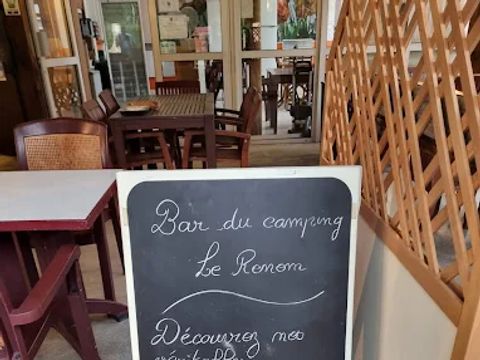 Bar du camping
Le Renom
Découvrez nos
véritables